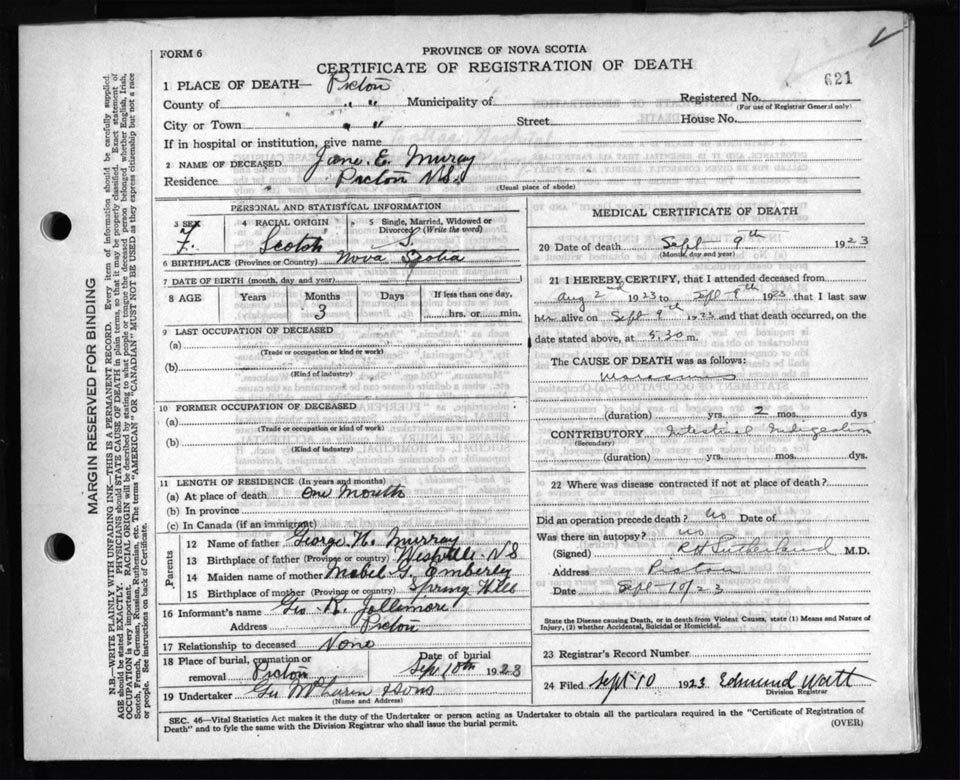 FORM 6
PROVINCE OF NOVA SCOTIA
CERTIFICATE OF REGISTRATION OF DEATH
621
1 PLACE OF DEATH— Pictou
County of " " Municipality of Registered No.
(For use of Registrar General only)
City or Town " " Street House No.
If in hospital or institution, give name
2 NAME OF DECEASED Jane E. Muray
Residence Pictou N.S.
(Usual place of abode)
PERSONAL AND STATISTICAL INFORMATION
3 SEX 4 RACIAL ORIGIN 5 Single, Married, Widowed or Divorced (Write the word)
F. Scotch S.
6 BIRTHPLACE (Province or Country) Nova Scotia
7 DATE OF BIRTH (month, day and year)
8 AGE Years Months Days If less than one day,
3 hrs. or min.
9 LAST OCCUPATION OF DECEASED
(a)
(Trade or occupation or kind or work)
(b)
(Kind of industry)
10 FORMER OCCUPATION OF DECEASED
(a)
(Trade or occupation or kind of work)
(b)
(Kind of industry)
11 LENGTH OF RESIDENCE (In years and months)
(a) At place of death One Month
(b) In province
(c) In Canada (if an immigrant)
Parents
12 Name of father George H. Murray
13 Birthplace of father (Province or country) Westville N.S
14 Maiden name of mother Mabel G. Emberley
15 Birthplace of mother (Province or country) Spring Hill
16 Informant's name Geo R. Jollimore
Address Pictou
17 Relationship to deceased None
18 Place of burial, cremation or removal Pictou Date of burial Sep. 10th 1923
19 Undertaker & Sons
(Name and Address)
MEDICAL CERTIFICATE OF DEATH
20 Date of death Sept 9th 1923
(Month, day and year)
21 I HEREBY CERTIFY, that I attended deceased from
Aug 2nd 1923 to Sept 9th 1923 that I last saw
her alive on Sept 9th 1923 and that death occurred, on the
date stated above, at 5.30 m.
The CAUSE OF DEATH was as follows:
Marasmus
(duration) yrs. 2 mos. dys
CONTRIBUTORY Intestinal Indigestion
(Secondary)
(duration) yrs. mos. dys.
22 Where was disease contracted if not at place of death?
Did an operation precede death? no Date of
Was there an autopsy? no
(Signed) Sutherland M.D.
Address Pictou
Date Sept 10/23
State the Disease causing Death, or in death from Violent Causes, state (1) Means and Nature of Injury, (2) whether Accidental, Suicidal or Homicidal.
23 Registrar's Record Number
24 Filed Sept 10 1923 Edmund Watt
Division Registrar
SEC. 46—Vital Statistics Act makes it the duty of the Undertaker or person acting as Undertaker to obtain all the particulars required in the "Certificate of Registration of
Death" and to fyle the same with the Division Registrar who shall issue the burial permit. (OVER)
MARGIN RESERVED FOR BINDING
N.B.—WRITE PLAINLY WITH UNFADING INK—THIS IS A PERMANENT RECORD. Every item of information should be carefully supplied.
AGE should be stated EXACTLY. PHYSICIANS should STATE CAUSE OF DEATH in plain terms, so that it may be properly classified. Exact statement of
OCCUPATION is very important. RACIAL ORIGIN will be described by stating to what people or tongue the deceased person belonged whether English, Irish,
Scotch, French, German, Russian, Ruthenian, etc. The terms "AMERICAN" OR "CANADIAN" MUST NOT BE USED as they express citizenship but not a race
or people. See instructions on back of Certificate.